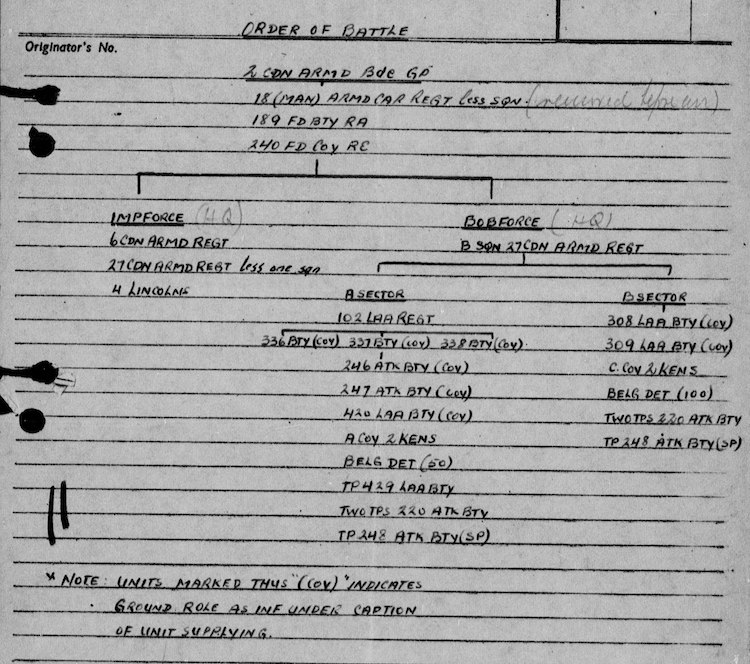 ORDER OF BATTLE
Originator's No.
2 CDN ARMD Bde GP
18 (MAN) ARMD CAR REGT less SQN
189 FD BTY RA
240 FD COY RE
IMPFORCE (HQ)
6 CDN ARMD REGT
27 CDN ARMD REGT less one sqn
4 LINCOLNS
BOBFORCE (HQ)
B SQN 27 CDN ARMD REGT
A SECTOR
102 LAA REGT
336 BTY (COY) 337 BTY (COY) 338 BTY (COY).
246 ATK BTY (COY)
247 ATK BTY (COY)
420 LAA BTY (COY)
A COY 2 KENS
BELG DET (50)
TP 429 LAA BTY
TWO TPS 220 ATK BTY
TP 248 ATK BTY (SP)
B SECTOR
308 LAA BTY (COY)
309 LAA BTY (COY)
C. COY 2 KENS
BELG DET (100)
TWO TPS 220 ATK BTY
TP 248 ATK BTY (SP)
* NOTE: UNITS MARKED THUS "(COY)" INDICATES
GROUND ROLE AS INF UNDER CAPTION
OF UNIT SUPPLYING.